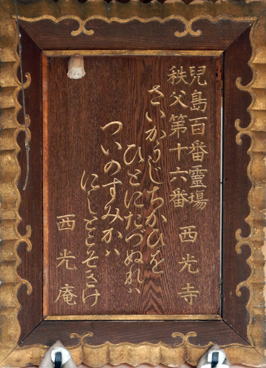 兒島百番靈場
秩父第十六番 西光寺
さいかうじちかひを
ひとにたづぬれハ
ついのすみかハ
にしとこそきけ
西光庵